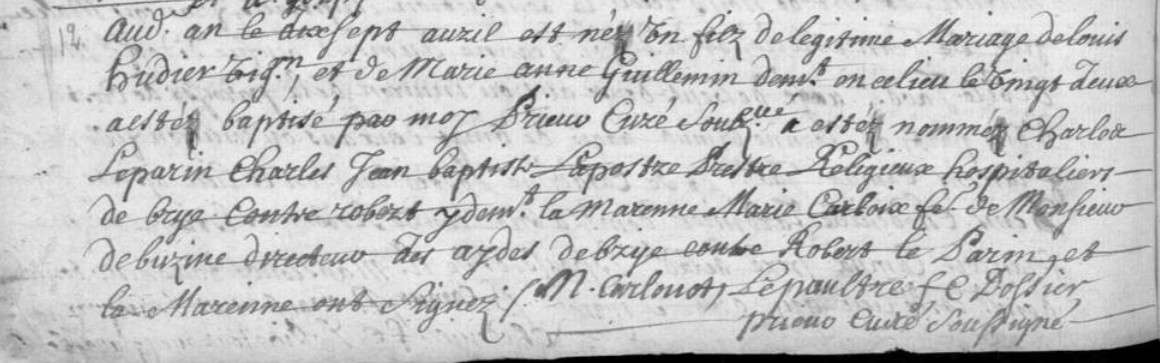 12.
Aud. an le dix sept avril est néz un filz de legitime Mariage de louis
hudier vig.n, et de Marie anne Guillemin dem.t en ce lieu le vingt deux
a estéz baptisé par moy Prieur Curé Soub.gne a estéz nomméz Charles
Le parin Charles Jean baptiste Lapostre Prestre Religieux hospitaliers
de brye Contre robert y dem.t la marenne Marie Carloix fe. de Monsieur
debuzine directeur des aydes de brye conte Robert le Parin, et
la Marenne ont Signez. M. Carlouot, Lepaultre f C Dossier
prieur Curé soussigné